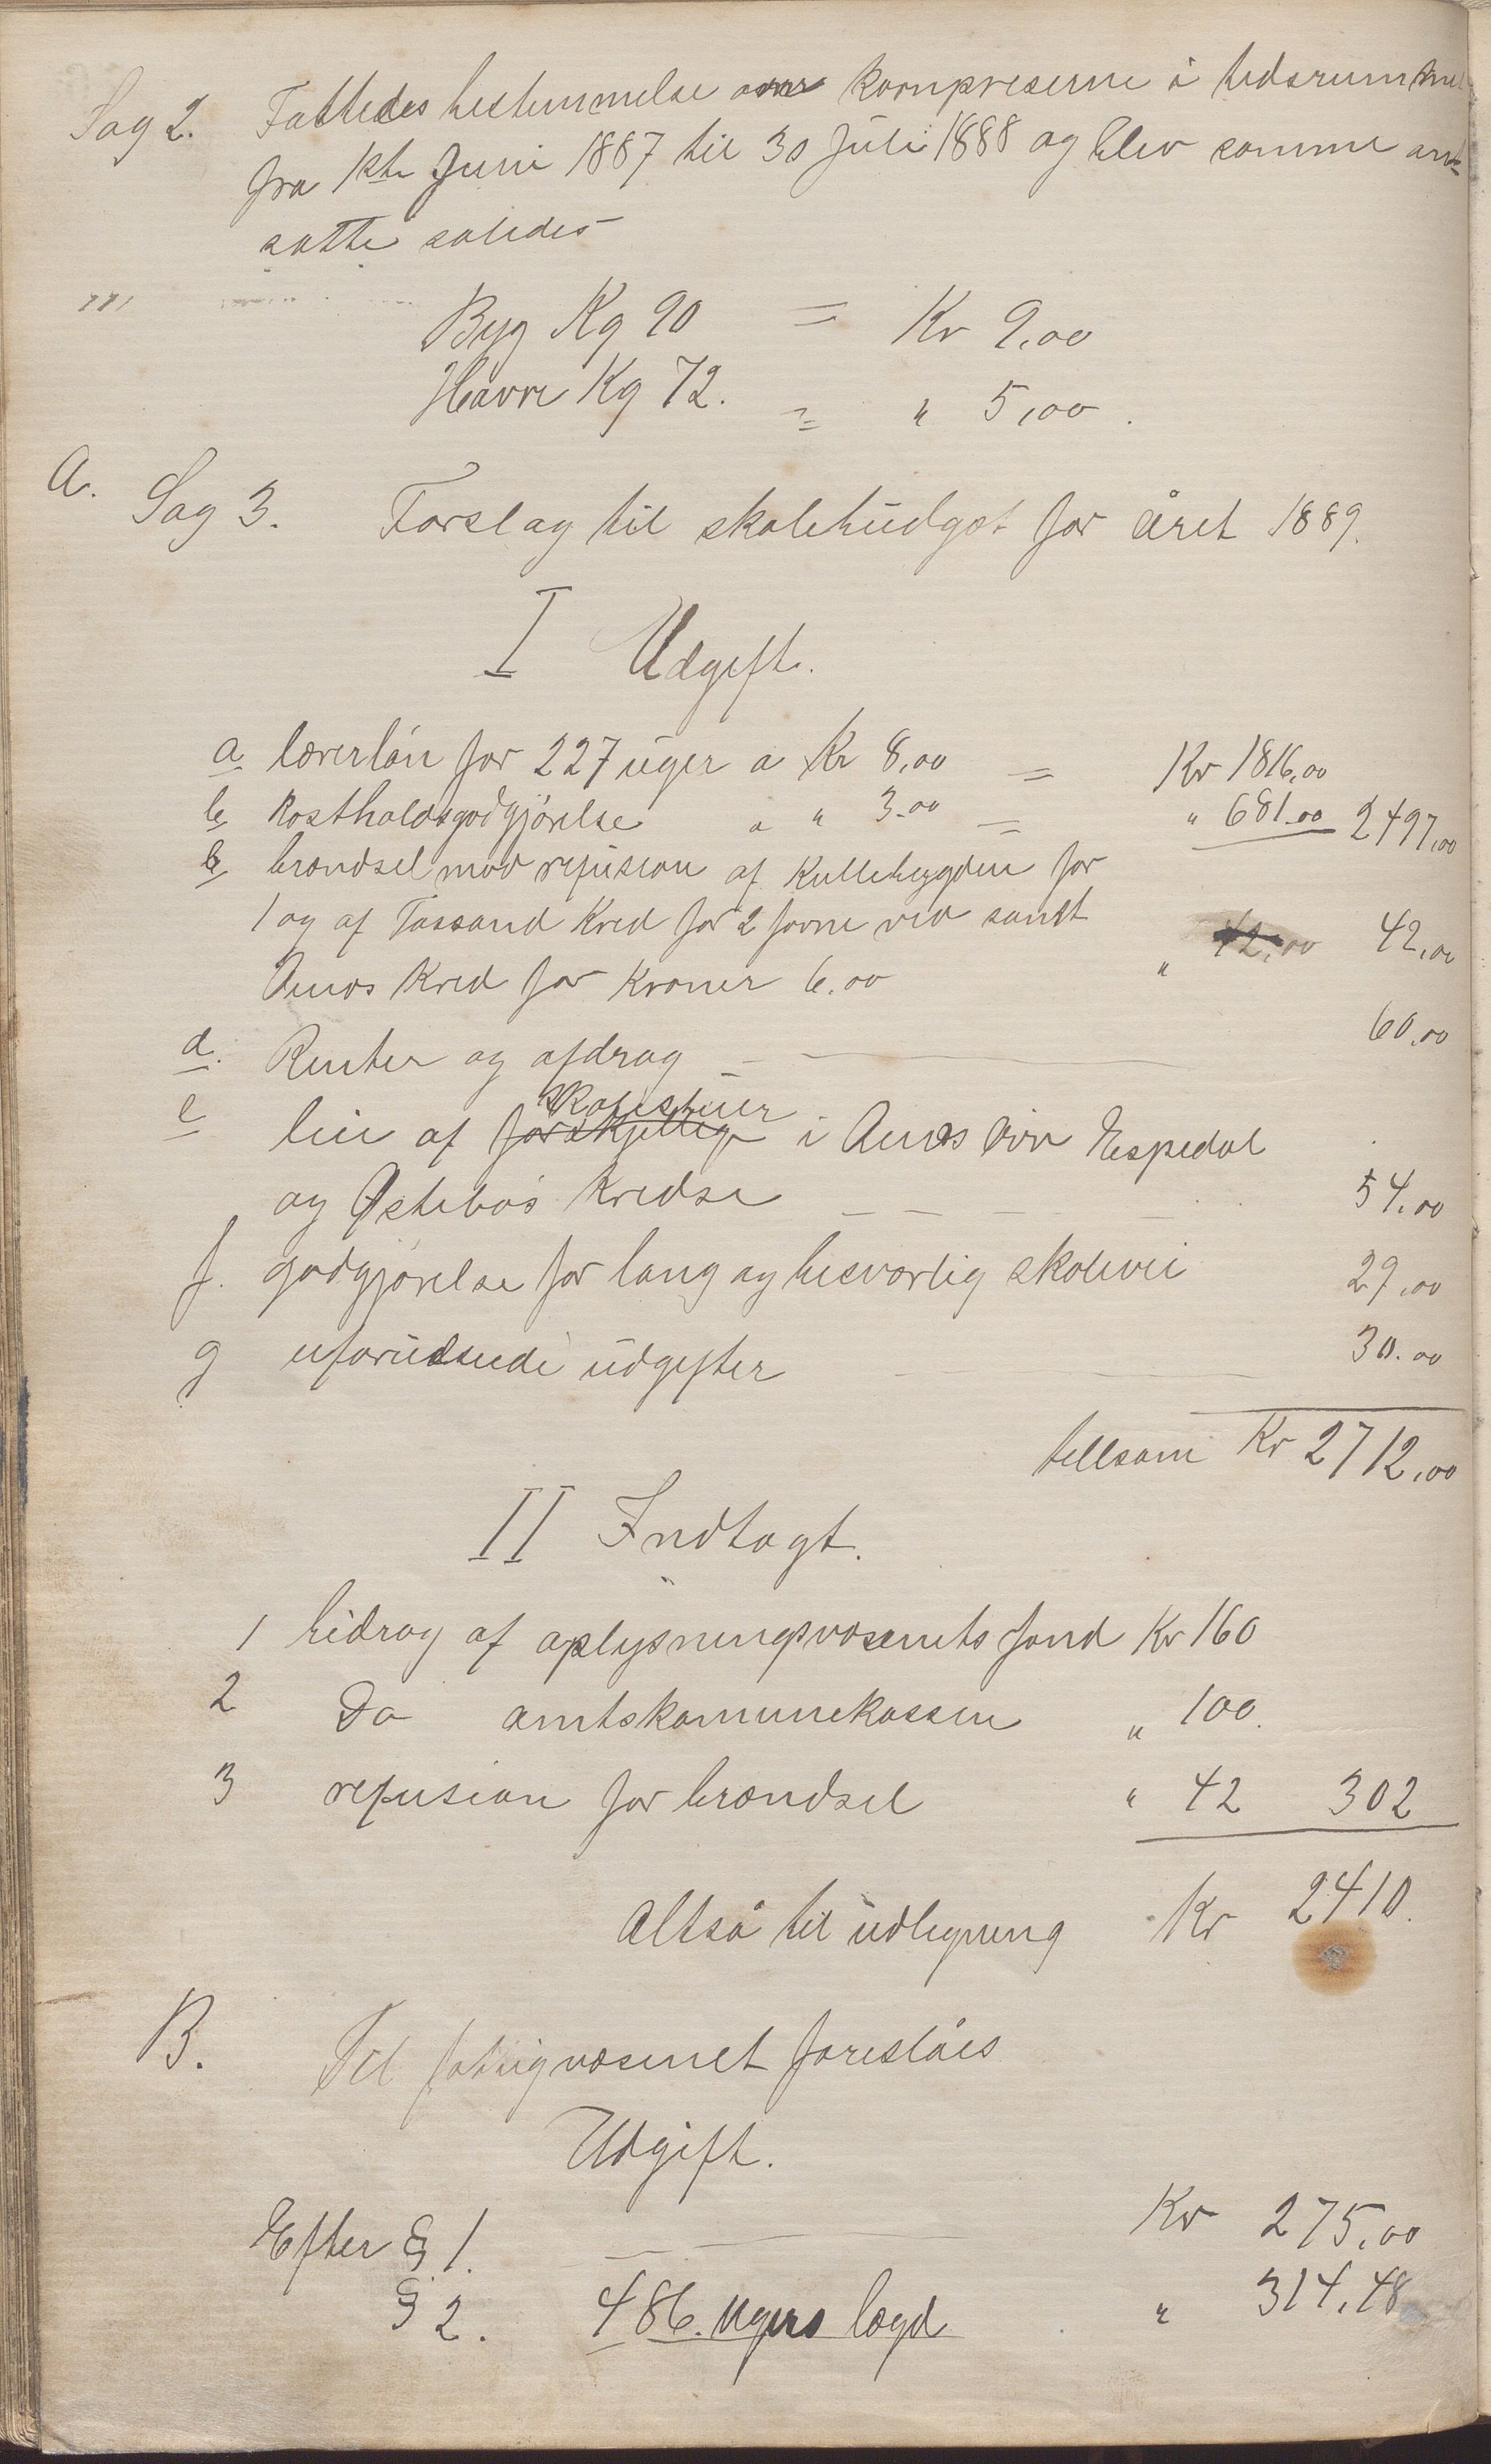 Sag 2. Fattedes bestemmelse om kornpriserne i tidsrummet
fra 1ste Juni 1887 til 30 Juli 1888 og blev samme an-
satte saledes
Byg Kg 90 = Kr 9,00
Havre Kg 72. = " 5,00.
A. Sag 3. Forslag til skolebudget for året 1889.
I Udgift.
a lærerløn for 227 uger a Kr 8,00 = Kr 1816,00
b kostholdsgodgjørelse a " 3.00 = " 681.00 2497,00
brændsel mod refusion af Kullebygden for
1 og af Tossand Kred for 2 forne ved samt
Amos Kred for Kroner 6.00 " 42,00 42,00
d. Renter og afdrag 60,00
e leie af forskjellige skolestuer i Amos Espedal
og Østebøs kredse 54,00
f. godgjørelse for lang og besværlig skolevei 29,00
g uforudseede udgifter 30.00
tilsam Kr 2712,00
II Indtægt.
1 bidrag af oplysningsvæsenets fond Kr 160
2 Do amtskomunekassen " 100.
3 refusion for brændsel " 42 302
Altså til udligning Kr 2410.
B. Til fattigvæsenet foreslåes
Udgift.
Efter § 1. Kr 275,00
§ 2. 486. ugers lægd " 314,48